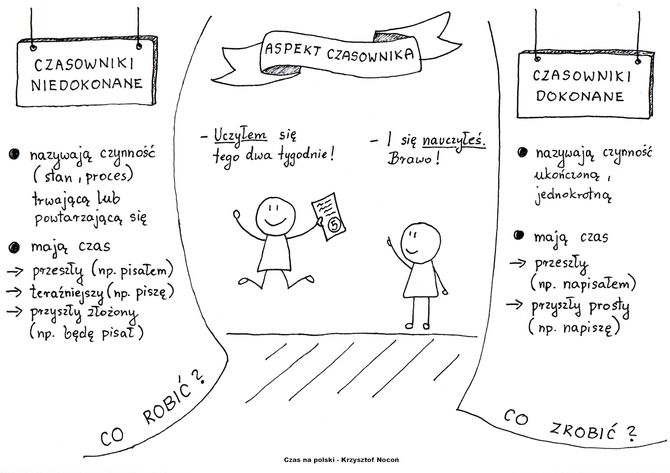 ASPEKT CZASOWNIKA
CZASOWNIKI
NIEDOKONANE
nazywają czynność
(stan, proces)
trwającą lub
powtarzającą się
mają czas
→ przeszły (np. pisałem)
→ teraźniejszy (np. piszę)
→ przyszły złożony
(np. będę pisał)
CO ROBIĆ?
- Uczyłem się
tego dwa tygodnie!
- I się nauczyłeś.
Brawo!
5
CZASOWNIKI
DOKONANE
nazywają czynność
ukończoną,
jednokrotną
mają czas
→ przeszły
(np. napisałem)
→ przyszły prosty
(np. napiszę)
CO ZROBIĆ?
Czas na polski - Krzysztof Nocoń